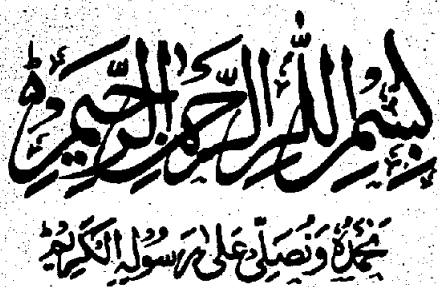 بِسْمِ اللّٰهِ الرَّحْمٰنِ الرَّحِيْمِ
نَحْمَدُهٗ وَنُصَلِّىْ عَلٰى رَسُوْلِهِ الْكَرِيْمِ